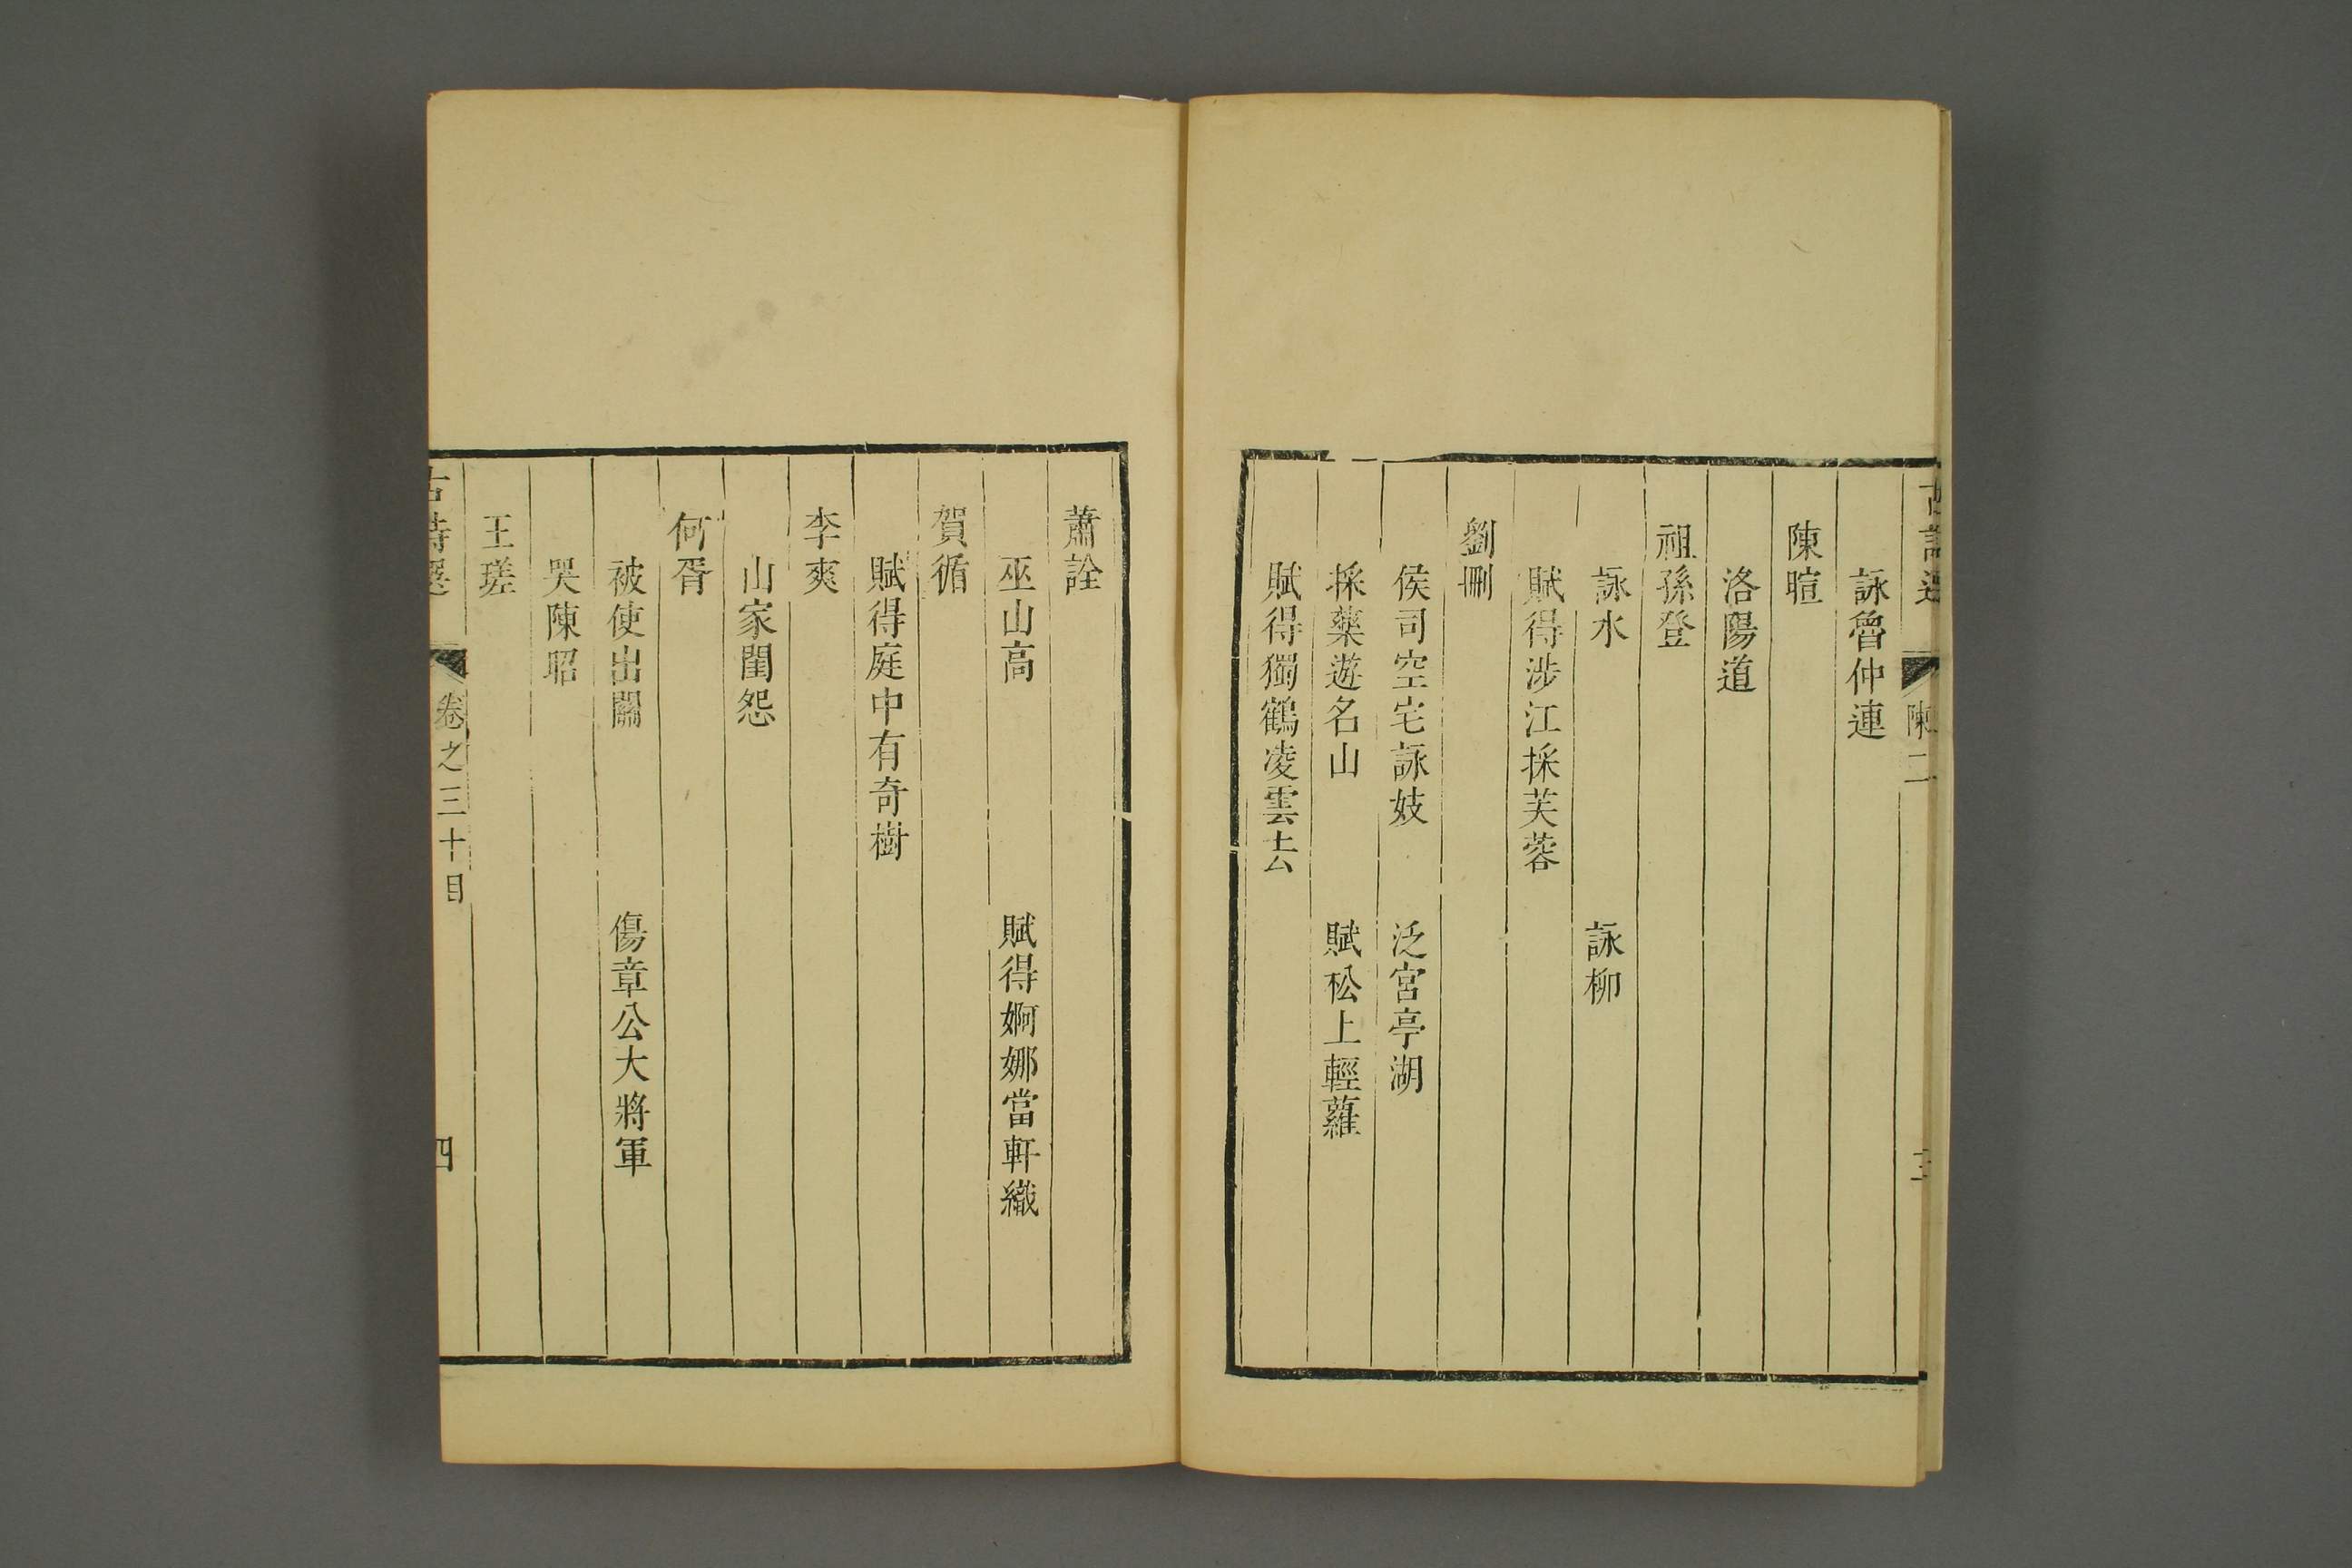 陳二
三
詠魯仲連
陳暄
洛陽道
祖孫登
詠水 詠柳
賦得涉江採芙蓉
劉刪
侯司空宅詠妓 泛宮亭湖
採藥遊名山 賦松上輕蘿
賦得獨鶴凌雲去
蕭詮
巫山高 賦得婀娜當軒織
賀循
賦得庭中有奇樹
李爽
山家閨怨
何胥
被使出關 傷章公大將軍
哭陳昭
王瑳
古詩選 卷之三十目 四